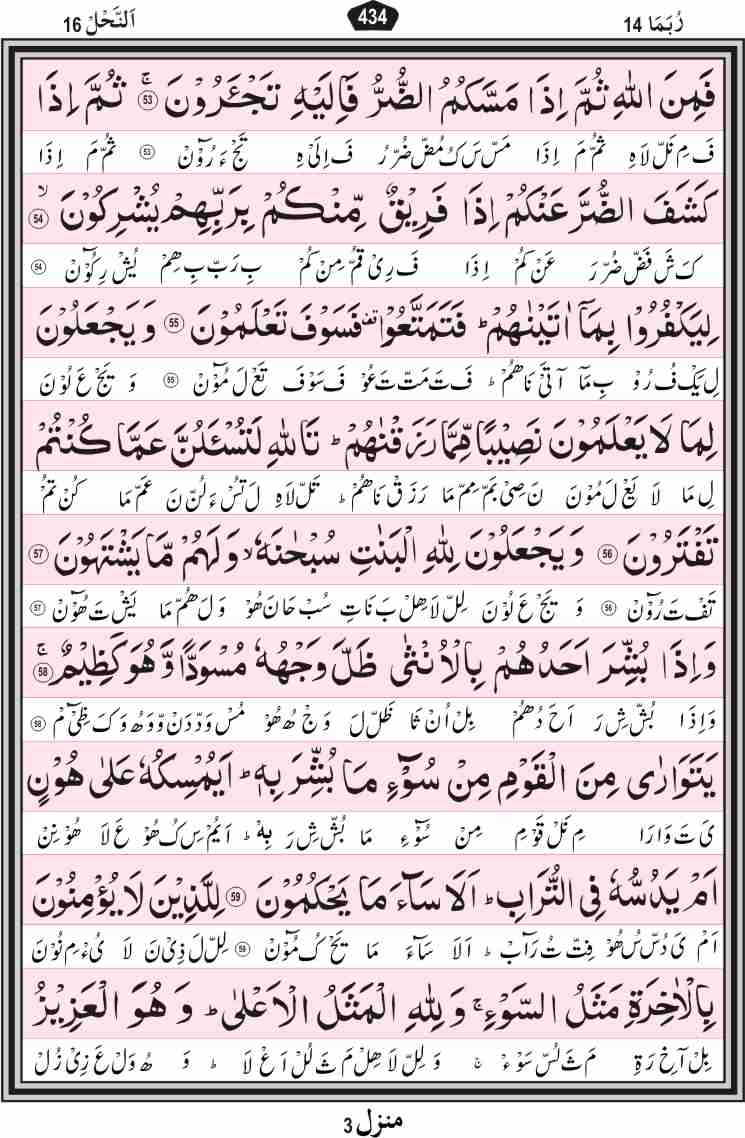 رُبَمَا 14
434
اَلنَّحْلُ 16
فَمِنَ اللّٰهِ ثُمَّ اِذَا مَسَّكُمُ الضُّرُّ فَاِلَيْهِ تَجْـَٔرُوْنَ ۚ 53 ثُمَّ اِذَا
فَ مِ نَلّ لَاهِ ثُمّ مَ اِذَا مَسّ سَ كُ مُضّ ضُرّ رُ فَ اِلَىْ هِ تَجْ ءَ رُوْٓنْ 53 ثُمّ مَ اِذَا
كَشَفَ الضُّرَّ عَنْكُمْ اِذَا فَرِيْقٌ مِّنْكُمْ بِرَبِّهِمْ يُشْرِكُوْنَ ۙ 54
كَ شَ فَضّ ضُرّ رَ عَنْ كُمْ اِذَا فَ رِىْ قُمّ مِنْ كُمْ بِ رَبّ بِ هِمْ يُشْ رِكُوْٓنْ 54
لِيَكْفُرُوْا بِمَاۤ اٰتَيْنٰهُمْ ؕ فَتَمَتَّعُوْا ۥ فَسَوْفَ تَعْلَمُوْنَ 55 وَ يَجْعَلُوْنَ
لِ يَكْ فُ رُوْ بِ مَآ آتَىْ نَاهُمْ ؕ فَ تَ مَتّ تَ عُوْ فَ سَوْفَ تَعْ لَ مُوْٓنْ 55 وَ يَجْ عَ لُوْنَ
لِمَا لَا يَعْلَمُوْنَ نَصِيْبًا مِّمَّا رَزَقْنٰهُمْ ؕ تَاللّٰهِ لَتُسْـَٔلُنَّ عَمَّا كُنْتُمْ
لِ مَا لَا يَعْ لَ مُوْنَ نَ صِىْ بَمّ مِمّ مَا رَ زَقْ نَاهُمْ ؕ تَلّ لَاهِ لَ تُسْ ءَ لُنّ نَ عَمّ مَا كُنْ تُمْ
تَفْتَرُوْنَ 56 وَ يَجْعَلُوْنَ لِلّٰهِ الْبَنٰتِ سُبْحٰنَهٗ ۙ وَ لَهُمْ مَّا يَشْتَهُوْنَ 57
تَفْ تَ رُوْٓنْ 56 وَ يَجْ عَ لُوْنَ لِلّ لَا هِلْ بَ نَاتِ سُبْ حَانَ هُوْ وَ لَ هُمّ مَا يَشْ تَ هُوْٓنْ 57
وَاِذَا بُشِّرَ اَحَدُهُمْ بِالْاُنْثٰى ظَلَّ وَجْهُهٗ مُسْوَدًّا وَّهُوَ كَظِيْمٌ ۚ 58
وَ اِذَا بُشّ شِ رَ اَحَ دُ هُمْ بِلْ اُنْ ثَا ظَلّ لَ وَجْ هُ هُوْ مُسْ وَدّ دَنْ وَّ وَ هُ وَ كَ ظِىْٓ مْ 58
يَتَوَارٰى مِنَ الْقَوْمِ مِنْ سُوْٓءِ مَا بُشِّرَ بِهٖ ؕ اَيُمْسِكُهٗ عَلٰى هُوْنٍ
ىَ تَ وَارَا مِ نَلْ قَوْمِ مِنْ سُوْٓءِ مَا بُشّ شِ رَ بِهْ ؕ اَيُمْ سِ كُ هُوْ عَ لَا هُوْ نِنْ
اَمْ يَدُسُّهٗ فِى التُّرَابِ ؕ اَلَا سَآءَ مَا يَحْكُمُوْنَ 59 لِلَّذِيْنَ لَا يُؤْمِنُوْنَ
اَمْ ىَ دُسّ سُ هُوْ فِتّ تُ رَآبْ ؕ اَلَا سَآءَ مَا يَحْ كُ مُوْٓنْ 59 لِلّ لَ ذِىْ نَ لَا يُءْ مِ نُوْنَ
بِالْاٰخِرَةِ مَثَلُ السَّوْءِ ۚ وَلِلّٰهِ الْمَثَلُ الْاَعْلٰى ؕ وَ هُوَ الْعَزِيْزُ
بِلْ آخِ رَةِ مَ ثَ لُسّ سَوْءْ ۚ وَ لِلّ لَا هِلْ مَ ثَ لُلْ اَعْ لَا ؕ وَ هُ وَلْ عَ زِىْ زُلْ
منزل 3